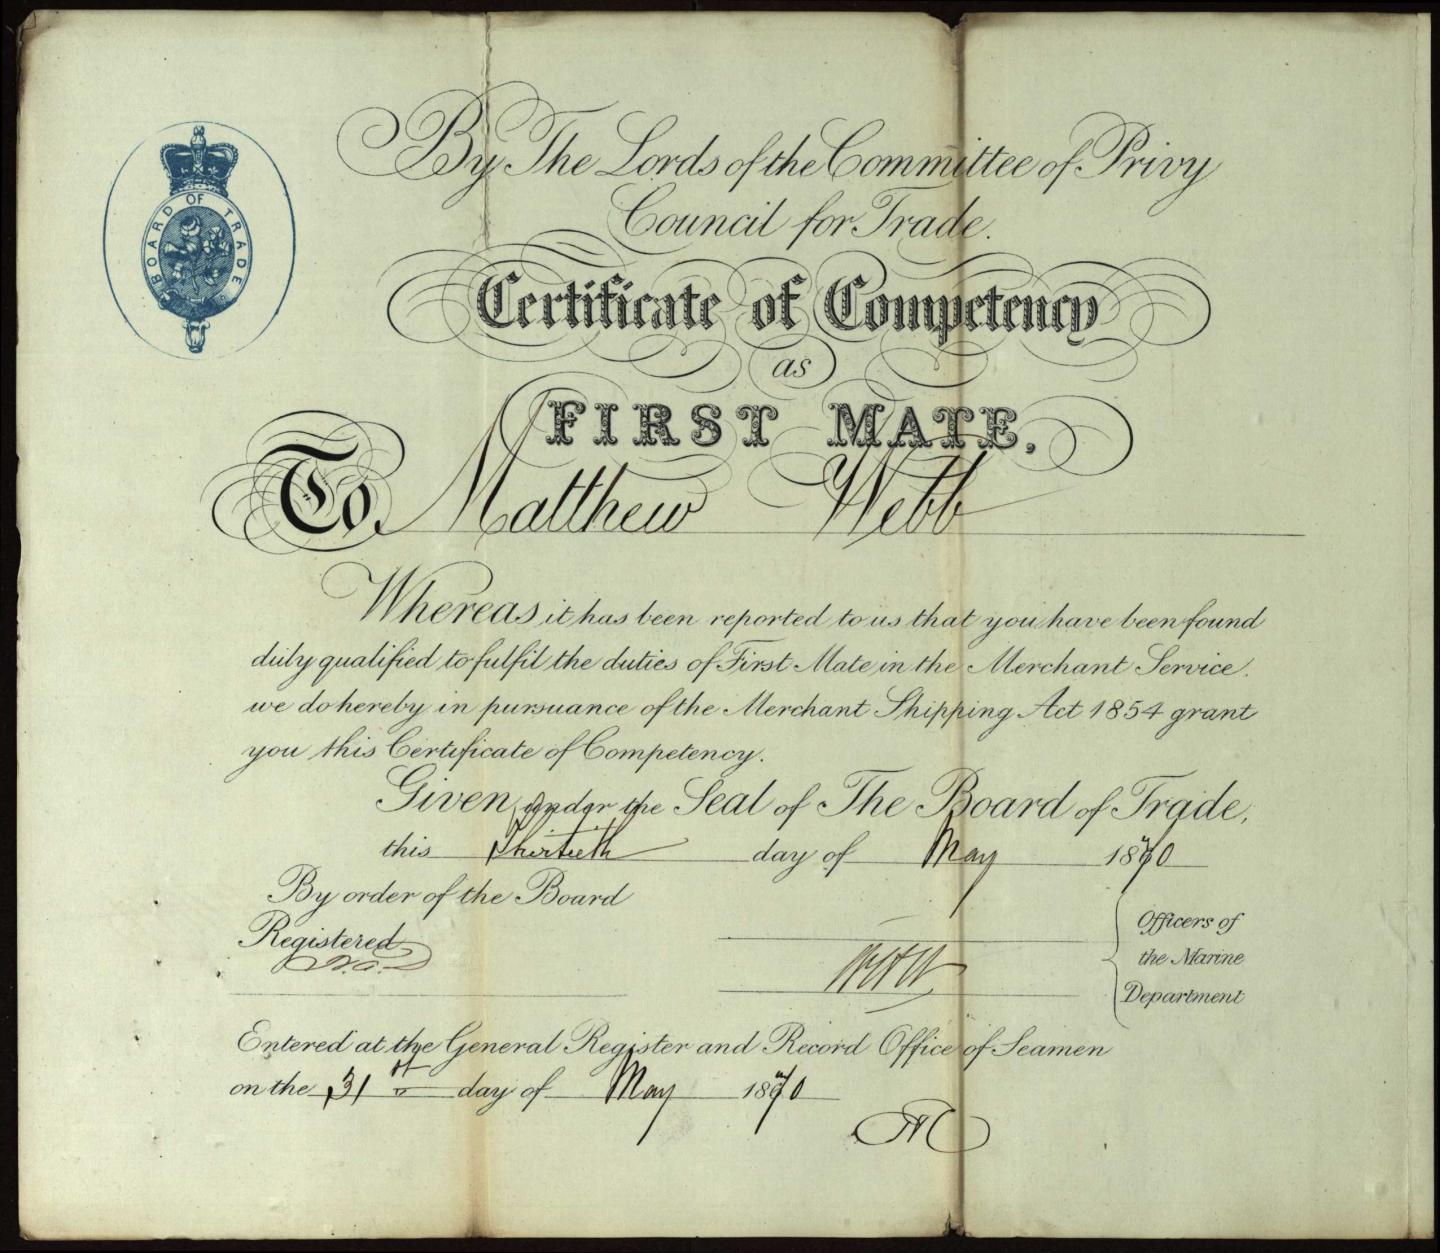 BOARD OF TRADE
By The Lords of the Committee of Privy
Council for Trade.
Certificate of Competency
as
FIRST MATE.
To Matthew Webb
Whereas it has been reported to us that you have been found
duly qualified to fulfil the duties of First Mate in the Merchant Service.
we do hereby in pursuance of the Merchant Shipping Act 1854 grant
you this Certificate of Competency.
Given under the Seal of The Board of Trade,
this Thirtieth day of May 1870
By order of the Board
Registered
Officers of
the Marine
Department
Entered at the General Register and Record Office of Seamen
on the 31st day of May 1870